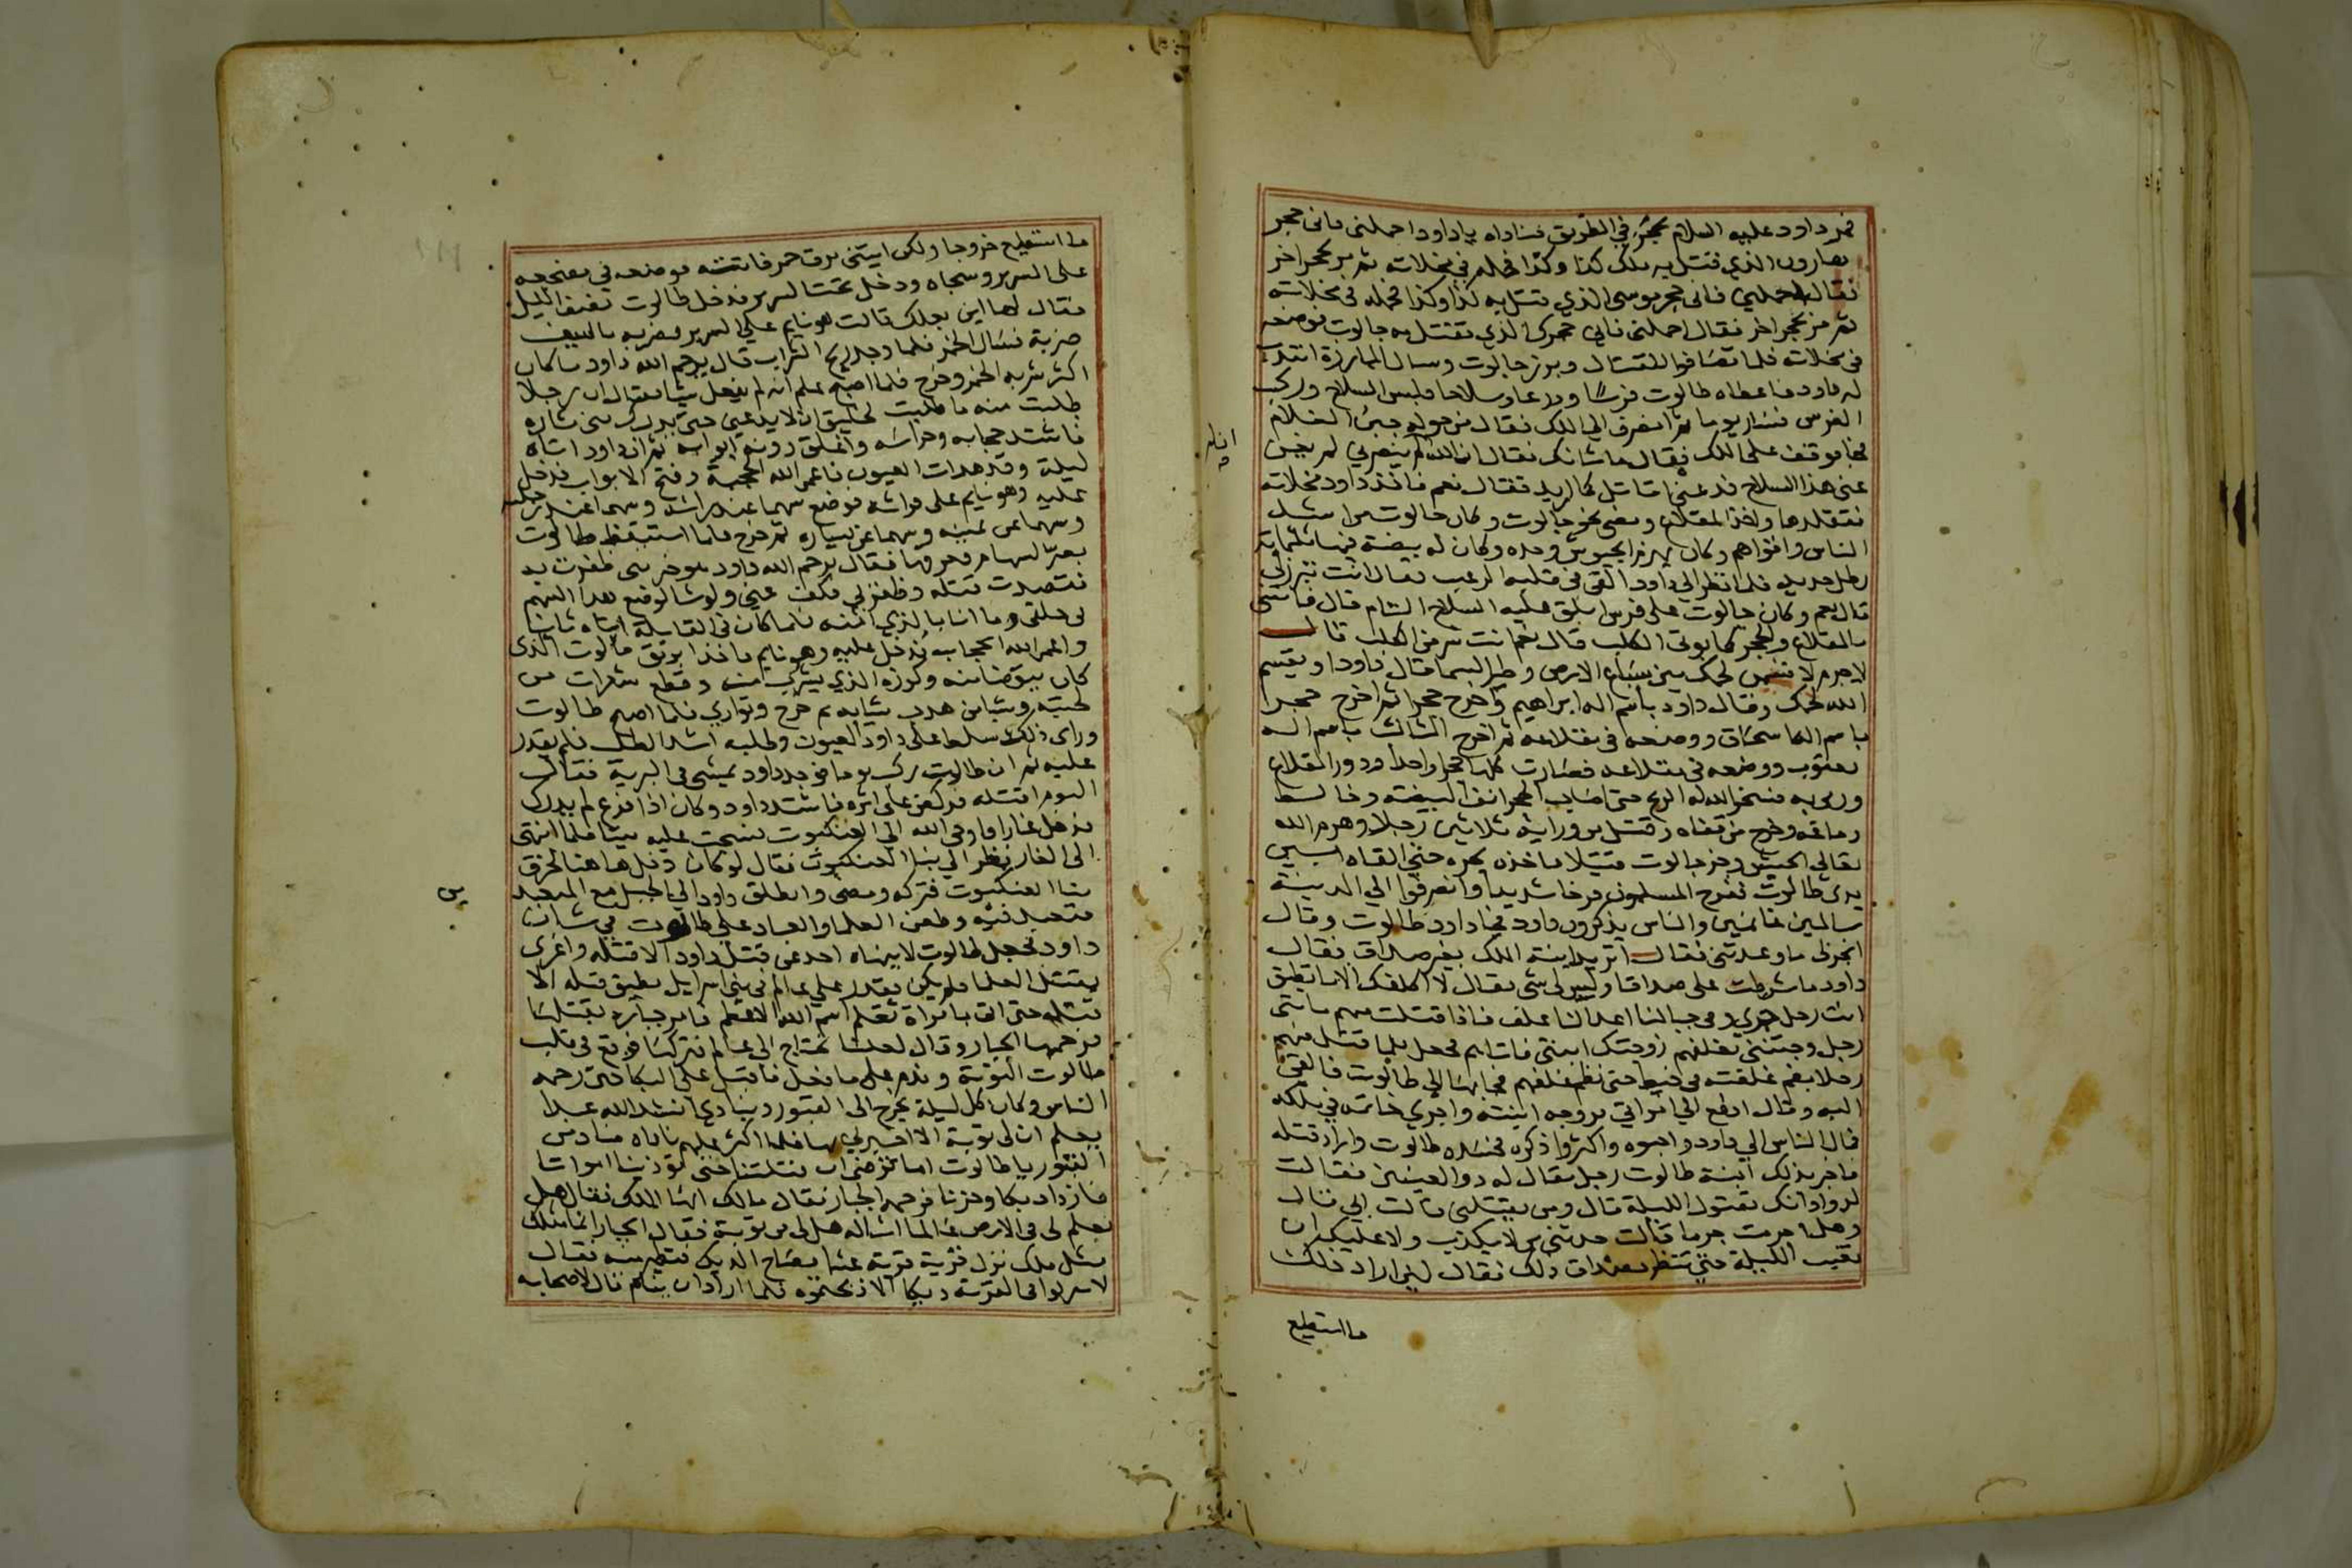 فمر داود عليه السلام بحجر في الطريق فناداه يا داود احملني فاني حجر
هارون الذي قتل به ملك كذا وكذا فحمله في مخلاته ثم مر بحجر اخر
فقال احملني فاني حجر موسى الذي قتل به كذا وكذا فحمله في مخلاته
ثم مر بحجر اخر فقال احملني فاني حجرك الذي تقتل به جالوت فوضعه
في مخلاته فلما تصافوا للقتال وبرز جالوت وسال المبارزة انتدب
له داود فاعطاه طالوت فرسا ودرعا وسلاحا فلبس السلاح وركب
الفرس فسار يوما ثم انصرف الى الملك فقال من حوله جبن الغلام
فجا فوقف على الملك فقال ما شانك فقال ان الله لم ينصرني لم يغن
عني هذا السلاح فدعني اقاتل كما اريد فقال نعم فاخذ داود مخلاته
فتقلدها واخذ المقلاع ومضى نحو جالوت وكان جالوت من اشد
الناس واقواهم وكان يهزم الجيوش وحده وكان له بيضة فيها ثلثماية
رطل حديد فلما نظر الى داود القي في قلبه الرعب فقال انت تبرز لي
قال نعم وكان جالوت على فرس ابلق عليه السلاح التام قال فاتيتني
بالمقلاع والحجر كما يوتى الكلب قال نعم انت شر من الكلب قال
لا جرم لا قسمن لحمك بين سباع الارض وطير السما فقال داود او يقسم
الله لحمك وقال داود باسم اله ابراهيم واخرج حجرا ثم اخرج حجرا
باسم اله اسحاق ووضعه في مقلاعه ثم اخرج الثالث باسم اله
يعقوب ووضعه في مقلاعه فصارت كلها حجرا واحدا ودور المقلاع
ورمى به فسخر الله له الريح حتى اصاب الحجر انف البيضة وخالط
دماغه وخرج من قفاه وقتل من ورايه ثلاثين رجلا وهزم الله
تعالى الجيش وخر جالوت قتيلا فاخذه يجره حتى القاه بين
يدي طالوت ففرح المسلمون فرحا شديدا وانصرفوا الى المدينة
سالمين غانمين والناس يذكرون داود فجا داود طالوت وقال
انجز لي ما وعدتني فقال اتريد ابنة الملك بغير صداق فقال
داود ما شرطت على صداقا وليس لي شي فقال لا اكلفك الا ما تطيق
انت رجل جري وفي جبالنا اعدا لنا غلف فاذا قتلت منهم مائتي
رجل وجيتني بغلفهم زوجتك ابنتي فاتاهم فجعل كلما قتل منهم
رجلا نظم غلفته في خيط حتى نظم غلفهم فجا بها الى طالوت فالقى
اليه وقال ادفع الي امراتي فزوجه ابنته واجرى خاتمه في ملكه
فمال الناس الى داود واحبوه واكثروا ذكره فحسده طالوت واراد قتله
فاخبر بذلك ابنة طالوت رجل يقال له ذو العينين فقالت
لداود انك مقتول الليلة قال ومن يقتلني قالت ابي قال
وهل اجرمت جرما قالت حدثني من لا يكذب ولا عليك ان
تغيب الليلة حتى تنظر مصداق ذلك فقال لين اراد ذلك
ما استطيع
انا له
ما استطيع خروجا ولكن ايتني بزق خمر فاتته فوضعه في مضجعه
على السرير وسجاه ودخل تحت السرير فدخل طالوت نصف الليل
فقال لها اين بعلك قالت هو نايم على السرير فضربه بالسيف
ضربة فسال الخمر فلما وجد ريح الشراب قال يرحم الله داود ما كان
اكثر شربه الخمر وخرج فلما اصبح علم انه لم يفعل شيا فقال ان رجلا
طلبت منه ما طلبت لخليق ان لا يدعني حتى يدرك مني ثاره
فاشتد حجابه وحراسه واغلق دونه ابوابه ثم ان داود اتاه
ليلة وقد هدات العيون فاعمى الله الحجبة وفتح الابواب فدخل
عليه وهو نايم على فراشه فوضع سهما عند راسه وسهما عند رجليه
وسهما عن يمينه وسهما عن يساره ثم خرج فلما استيقظ طالوت
بصر بالسهام فعرفها فقال يرحم الله داود هو خير مني ظفرت به
فقصدت قتله وظفر بي فكف عني ولو شا لوضع هذا السهم
في حلقي وما انا بالذي امنه فلما كان في القابلة اتاه ثانيا
واعمى الله الحجاب فدخل عليه وهو نايم فاخذ ابريق طالوت الذي
كان يتوضا منه وكوزه الذي يشرب منه وقطع شعرات من
لحيته وشيا من هدب ثيابه ثم خرج وتوارى فلما اصبح طالوت
وراى ذلك سلط على داود العيون وطلبه اشد الطلب فلم يقدر
عليه ثم ان طالوت ركب يوما فوجد داود يمشي في البرية فقال
اليوم اقتله فركض على اثره فاشتد داود وكان اذا فزع لم يدرك
فدخل غارا فاوحى الله الى العنكبوت فنسجت عليه بيتا فلما انتهى
الى الغار نظر الى بنا العنكبوت فقال لو كان دخل هاهنا لخرق
بنا العنكبوت فتركه ومضى وانطلق داود الى الجبل مع المتعبدين
فتعبد فيه وطعن العلما والعباد على طالوت في شان
داود فجعل طالوت لا ينهاه احد عن قتل داود الا قتله واغرى
بقتل العلما فلم يكن يقدر على عالم في بني اسرايل يطيق قتله الا
قتله حتى اتى بامراة تعلم اسم الله الاعظم فامر جباره بقتلها
فرحمها الجبار وقال لعلنا نحتاج الى عالم فتركها فوقع في قلب
طالوت التوبة وندم على ما فعل فاقبل على البكا حتى رحمه
الناس وكان كل ليلة يخرج الى القبور وينادي انشد الله عبدا
يعلم ان لي توبة الا اخبرني بها فلما اكثر عليهم ناداه مناد من
القبور يا طالوت اما ترضى ان قتلتنا حتى تؤذينا امواتا
فازداد بكا وحزنا فرحمه الجبار فقال مالك ايها الملك فقال هل
تعلم لي في الارض عالما اساله هل لي من توبة فقال الجبار انما مثلك
مثل ملك نزل قرية عشا فصاح الديك فتطير منه فقال
لا تتركوا في القرية ديكا الا ذبحتموه فلما اراد ان ينام قال لاصحابه
ين